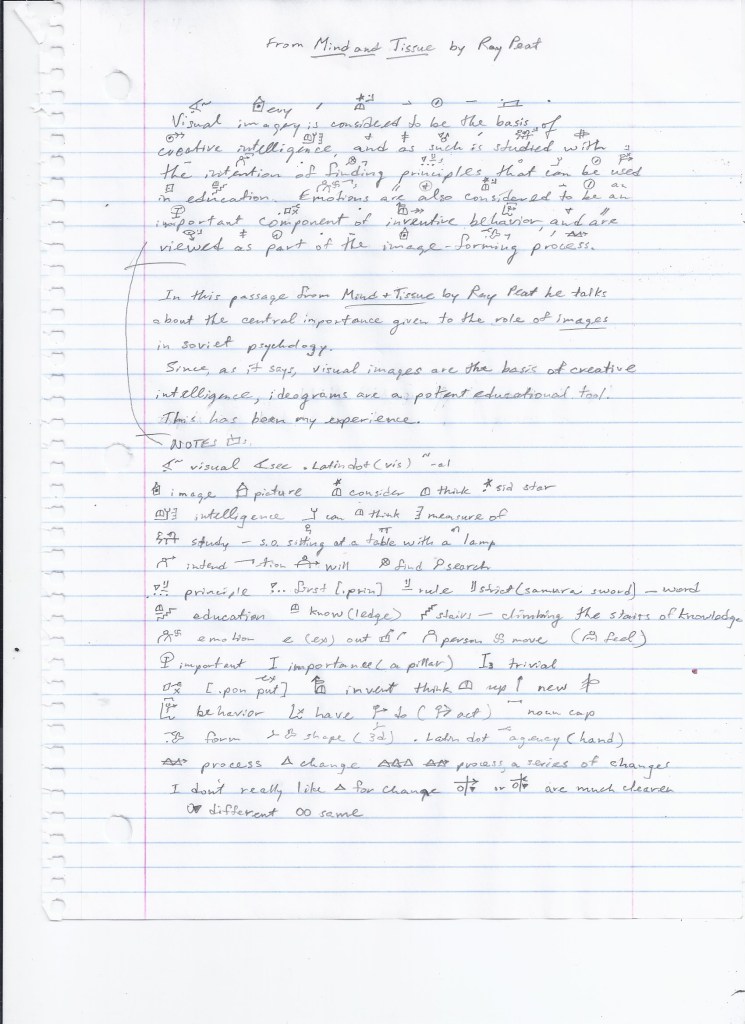 From Mind and Tissue by Ray Peat
Visual imagery is considered to be the basis of
creative intelligence, and as such is studied with
the intention of finding principles that can be used
in education. Emotions are also considered to be an
important component of inventive behavior, and are
viewed as part of the image-forming process.
In this passage from Mind + Tissue by Ray Peat he talks
about the central inportance given to the role of images
in soviet psychology.
Since, as it says, visual images are the basis of creative
intelligence, ideograms are a potent educational tool.
This has been my experience.
NOTES
visual see . Latin dot (vis) -al
image picture consider think sid star
intelligence can think measure of
study - s.o. sitting at a table with a lamp
intend tion will find search
principle first [.prin] rule strict (samura sword) - word
education know(ledge) stairs - climbing the stairs of knowledge
emotion e (ex) out person move (feel)
important I importance (a pillar) trivial
[.pon put] invent think up new
behavior have do (act) noun cap
form shape (3d) . Latin dot agency (hand)
process change process, a series of changes
I don't really like for change or are much clearer
different same